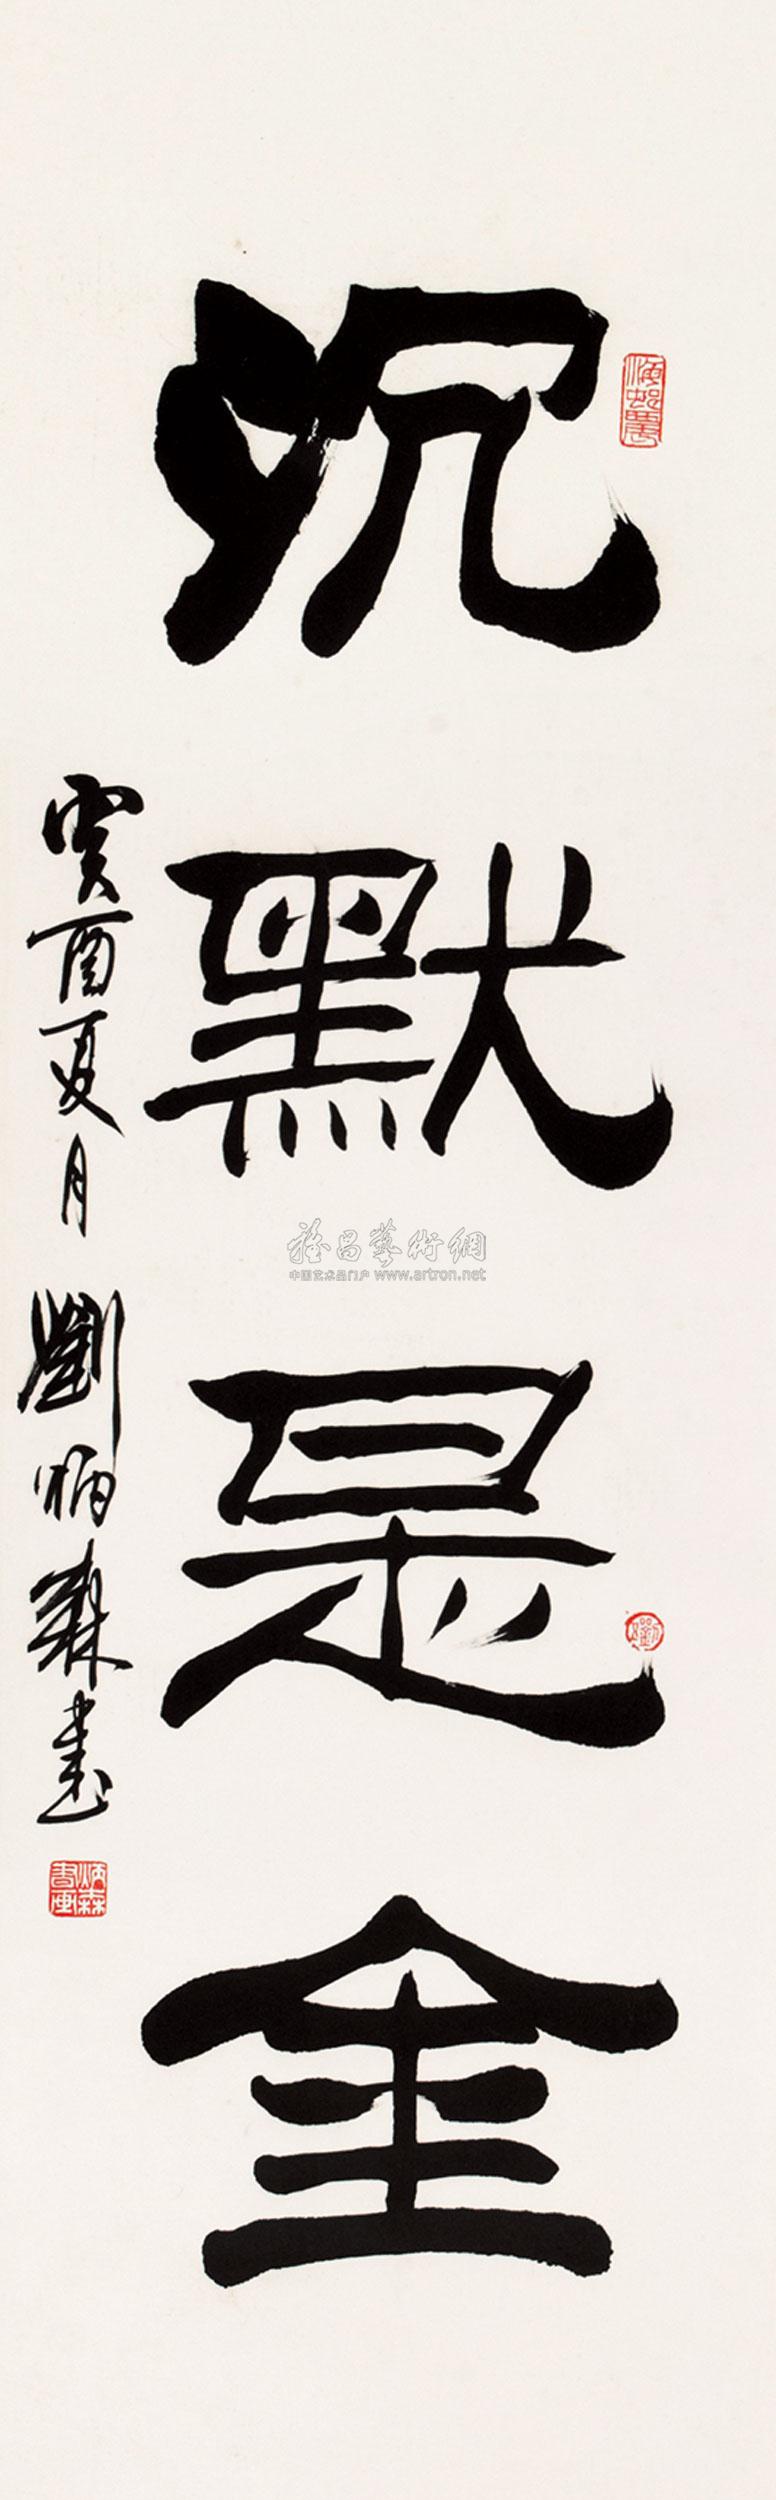 沉默是金
癸酉夏月 劉炳森書
雅昌藝術網
中国艺术品门户 www.artron.net
炳森書画